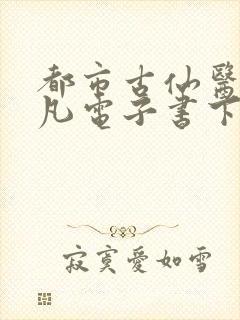 都市古仙醫
凡電子書下
寂寞愛如雪